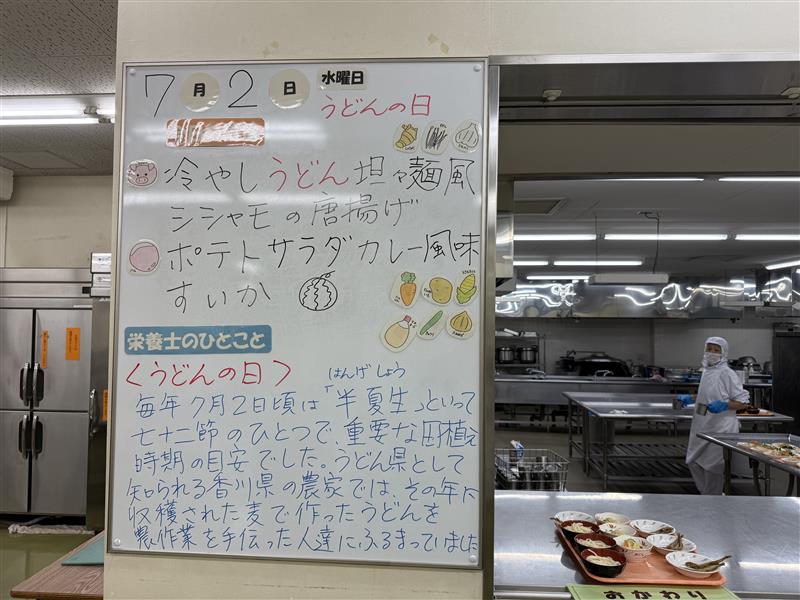 7月2日 水曜日
うどんの日
冷やしうどん坦々麺風
シシャモの唐揚げ
ポテトサラダカレー風味
すいか
栄養士のひとこと
<うどんの日>
はんげしょう
毎年7月2日頃は「半夏生」といって
七十二節のひとつで、重要な田植え
時期の目安でした。うどん県として
知られる香川県の農家では、その年に
収穫された麦で作ったうどんを
農作業を手伝った人達にふるまっていました
おかわり